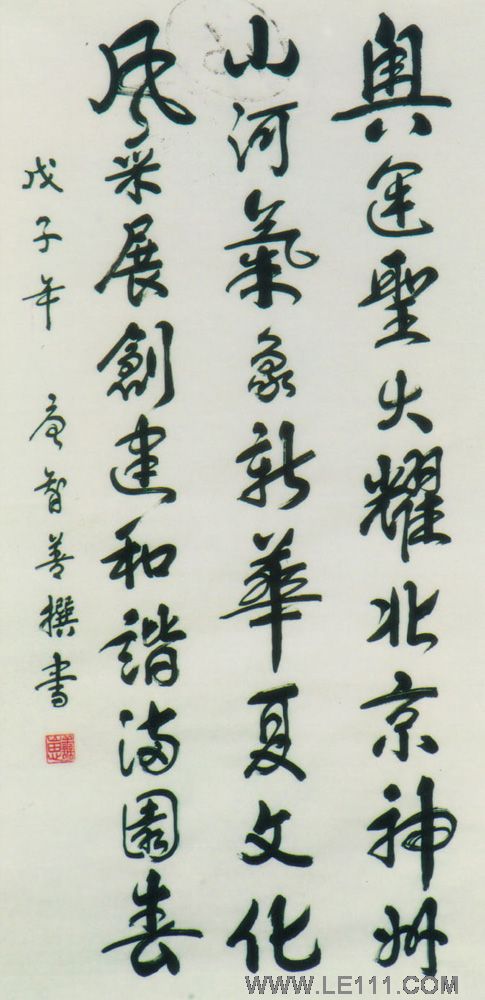 奥运聖火耀北京神州
山河氣象新華夏文化
风采展創建和諧满園春
戊子年 唐智善撰書
WWW.LE111.COM